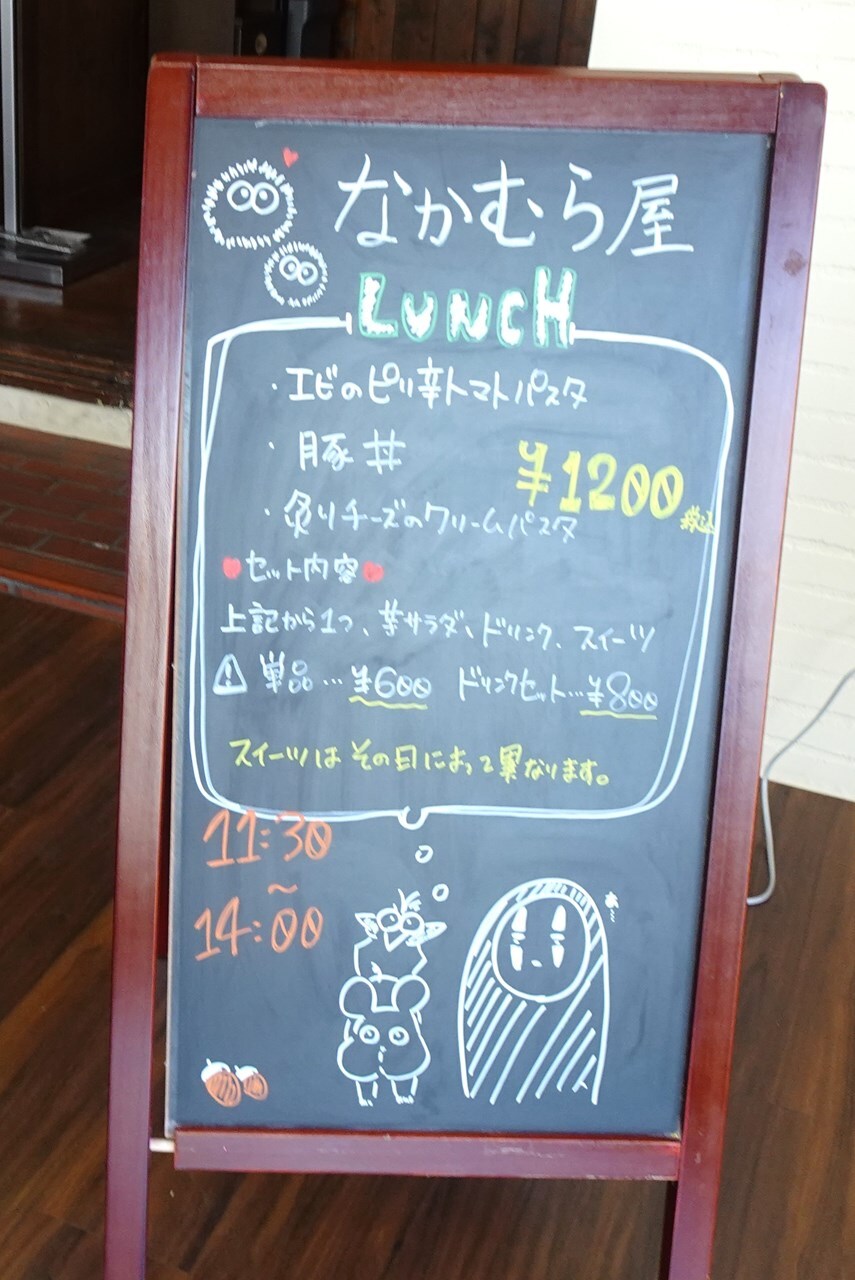 なかむら屋
LUNCH
・エビのピリ辛トマトパスタ
・豚丼
¥1200
税込
・炙りチーズのクリームパスタ
セット内容
上記から1つ、芋サラダ、ドリンク、スイーツ
単品…¥600 ドリンクセット…¥800
スイーツはその日によって異なります。
11:30
～
14:00
あ…